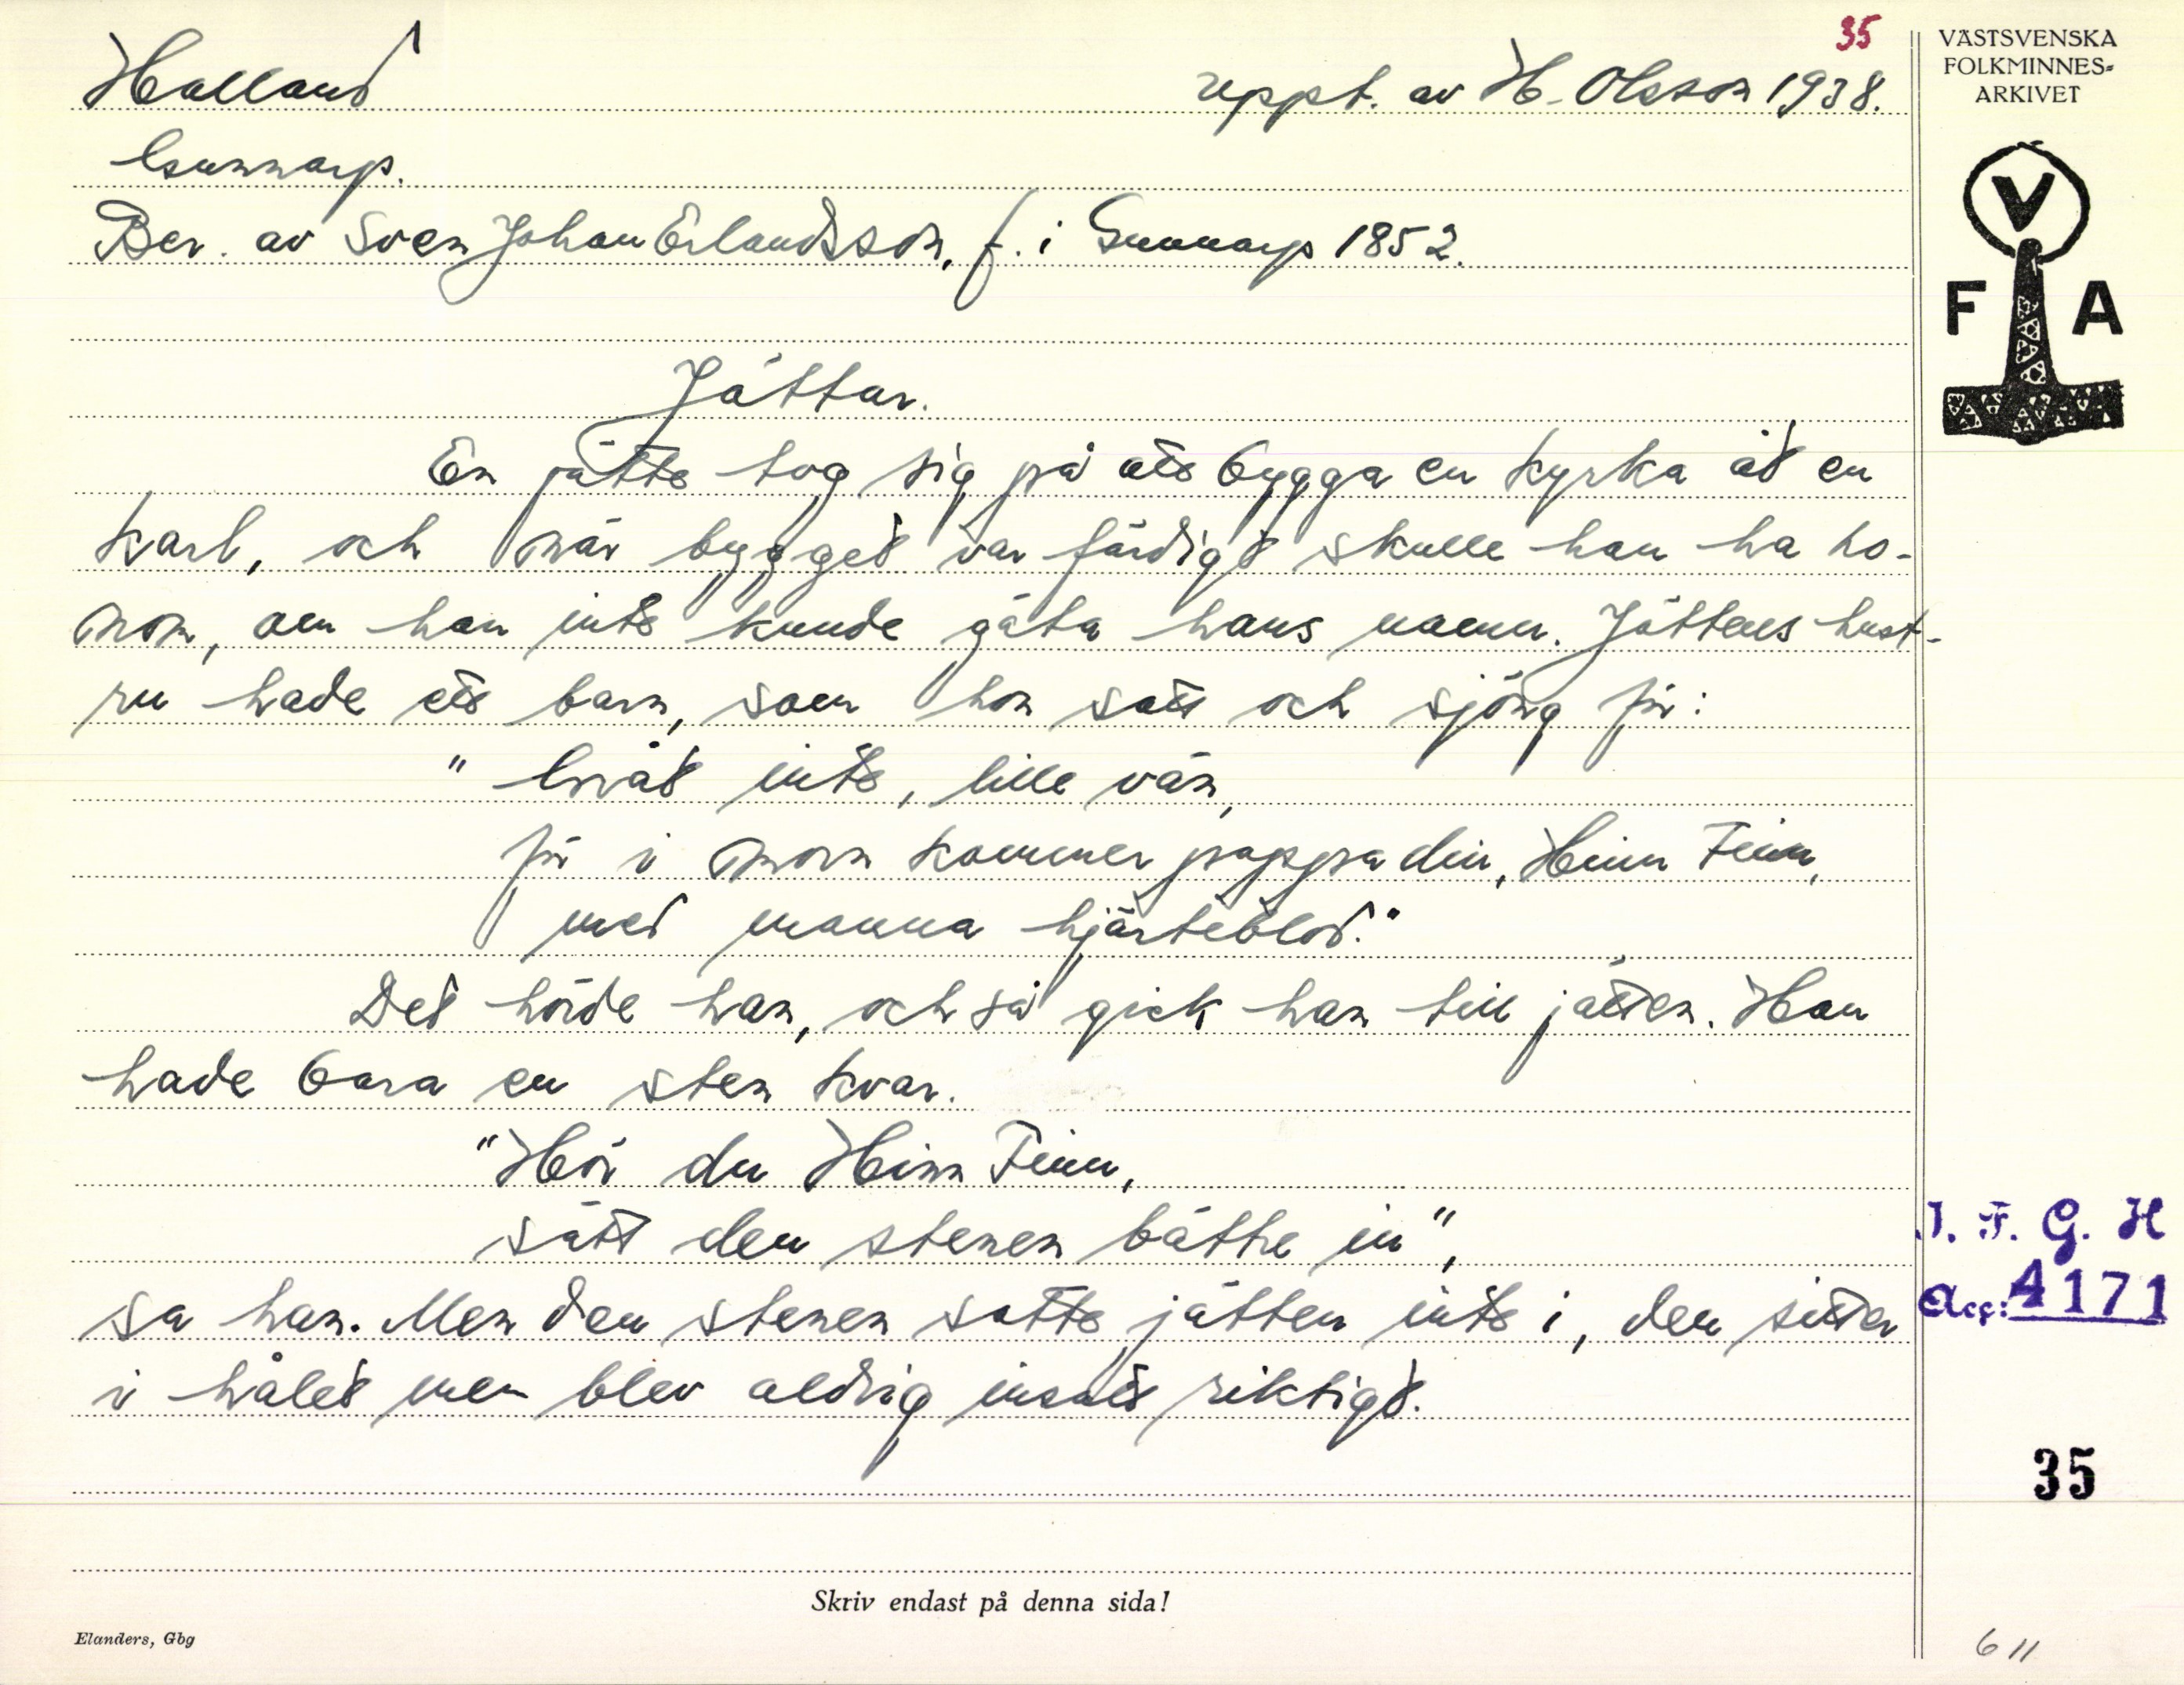 35
Halland uppt. av H. Olsson 1938.
Gunnarp.
Ber. av Sven Johan Erlandsson, f. i Gunnarp 1852.
Jättar.
En jätte tog sig på att bygga en kyrka åt en
karl, och när bygget var färdigt skulle han ha ho-
nom, om han inte kunde gäta hans namn. Jättens hust-
ru hade ett barn, som hon satt och sjöng för:
"Gråt inte, lille vän,
för i morn kommer pappa din, Hinn Finn,
med manna hjärteblod."
Det hörde han, och så gick han till jätten. Han
hade bara en sten kvar.
"Hör du Hinn Finn,
sätt den stenen bätte in",
sa han. Men den stenen satte jätten inte i, den sitter
i hålet men blev aldrig insatt riktigt.
Skriv endast på denna sida!
Elanders, Gbg
VÄSTSVENSKA
FOLKMINNES-
ARKIVET
V
F A
I. F. G. H
Acc: 4171
35
611